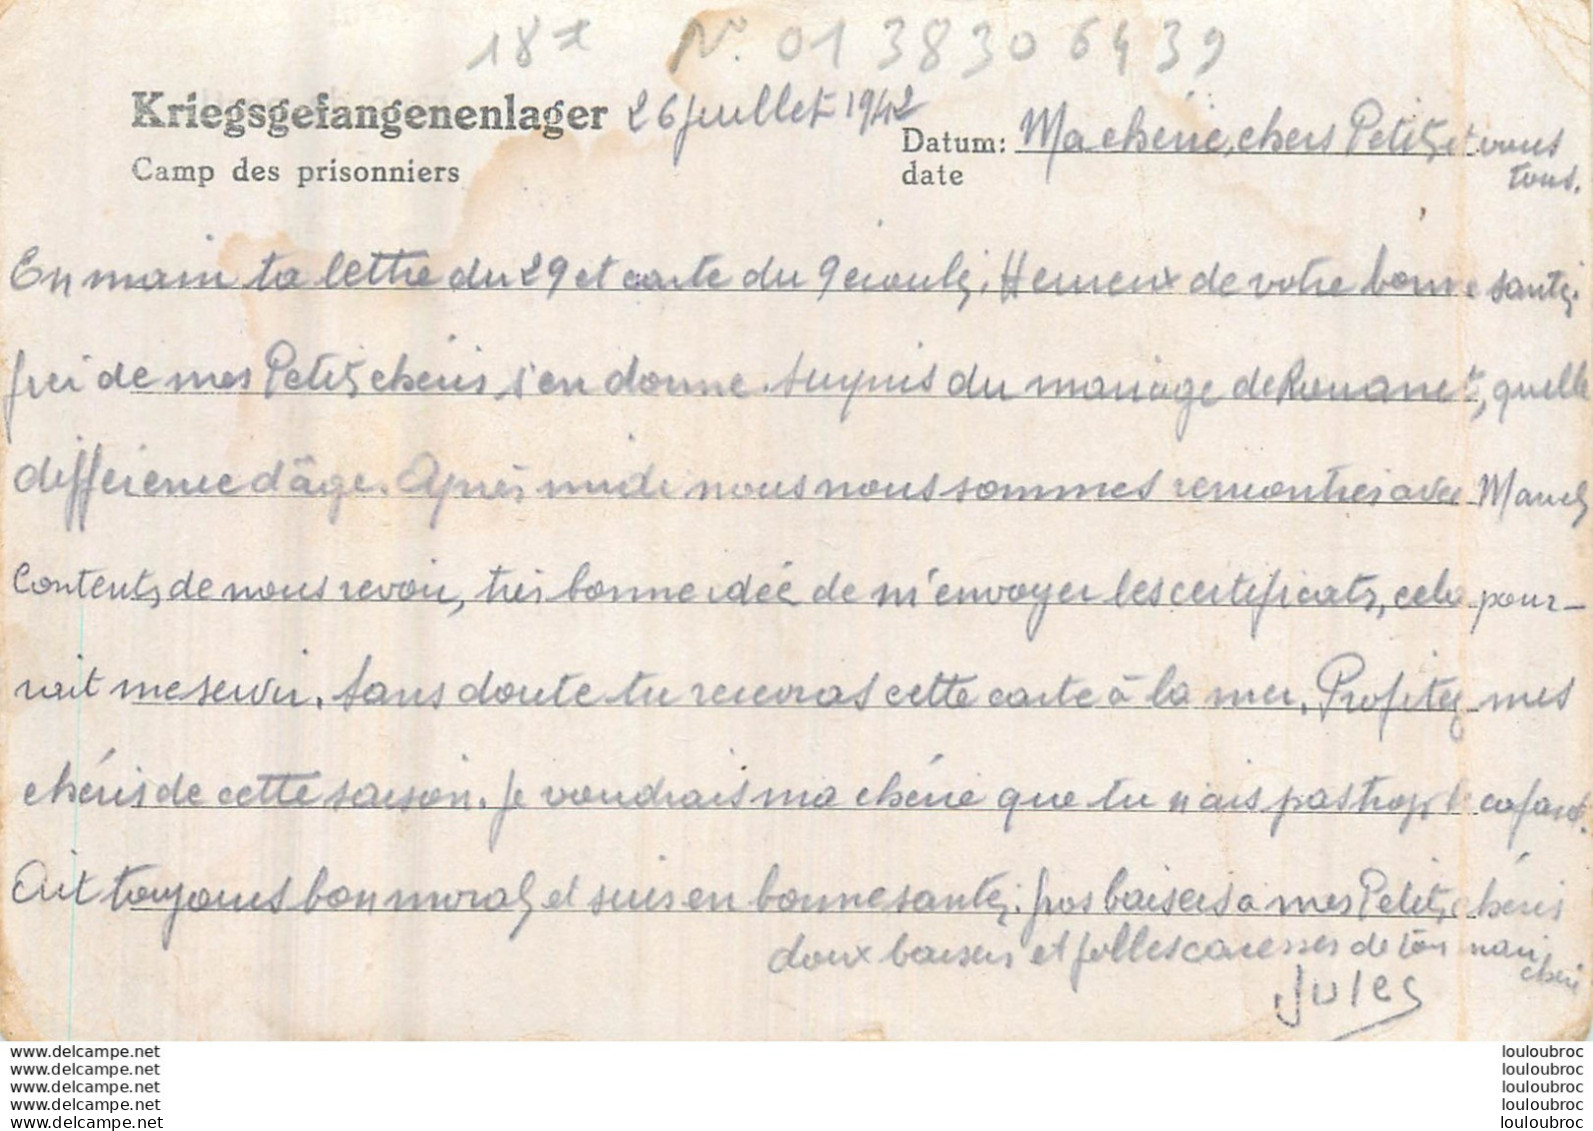 18 N° 0138306439
Kriegsgefangenenlager 26 Juillet 1942
Camp des prisonniers
Datum: Ma chérie, chers Petits, et vous
date
tous.
En main ta lettre du 29 et carte du 9 écoulé. Heureux de votre bonne santé.
que de mes Petits chéris s'en donne. Surpris du mariage de Rouanet, quelle
différence d'âge. Après midi nous nous sommes rencontrés avec
Contents de nous revoir, très bonne idée de m'envoyer les certificats, cela pour-
rait me servir. Sans doute tu recevras cette carte à la mer. Profitez mes
chéris de cette saison. Je voudrais ma chérie que tu n'ais pas trop le cafard.
Ait toujours bon moral et suis en bonne santé. Gros baisers à mes Petits chéris
doux baisers et folles caresses de ton mari
chéri
Jules
www.delcampe.net
www.delcampe.net
www.delcampe.net
www.delcampe.net
www.delcampe.net
louloubroc
louloubroc
louloubroc
louloubroc
louloubroc